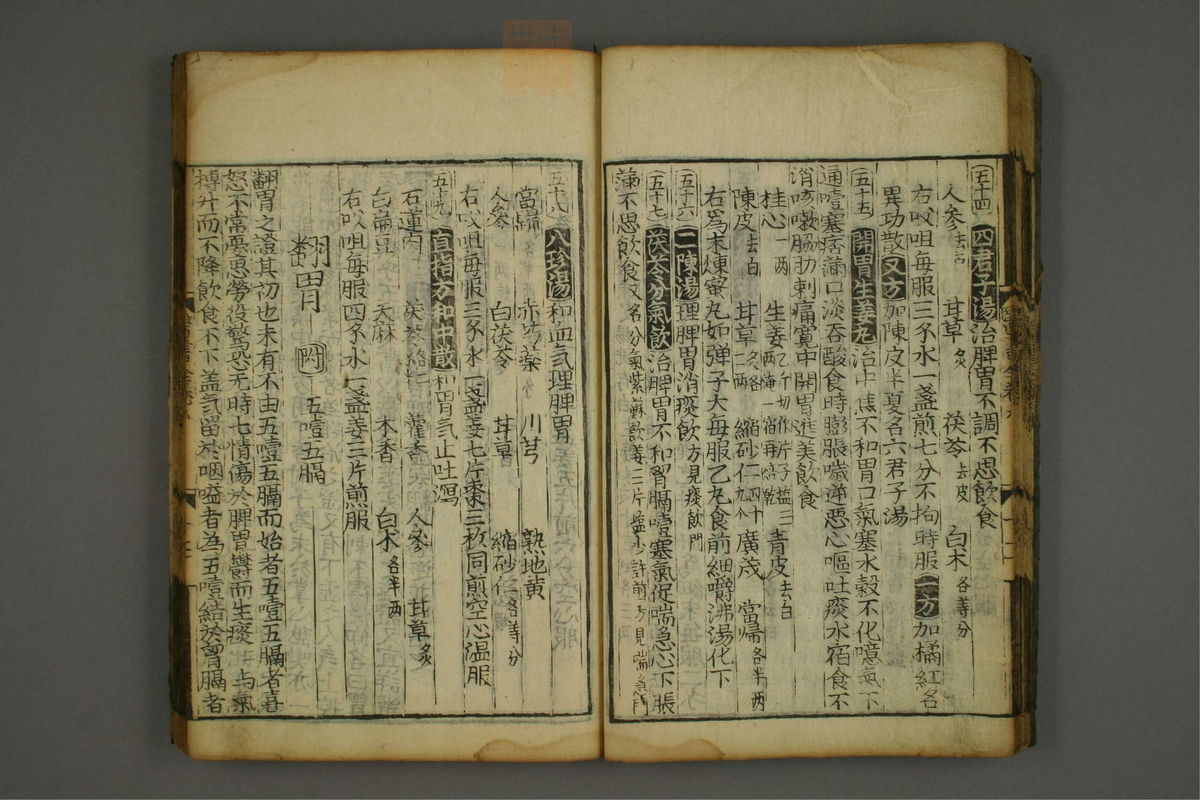 五十四 四君子湯 治脾胃不調不思飲食
人参去芦 甘草炙 茯苓去皮 白术各等分
右㕮咀每服三錢水一盞煎七分不拘時服 一方 加橘紅名
異功散 又方 加陳皮半夏名六君子湯
五十五 開胃生姜丸 治中焦不和胃口氣塞水穀不化噫氣下
通噎塞痞滿口淡吞酸食時膨脹噦逆惡心嘔吐痰水宿食不
消咳嗽脇肋刺痛寛中開胃進美飲食
桂心一两 生姜 青皮去白
陳皮去白 甘草炙各二两 縮砂仁四十九个 廣茂 當歸各半两
右爲末煉蜜丸如弹子大每服乙丸食前細嚼沸湯化下
五十六 二陳湯 理脾胃消痰飲方見痰飲門
五十七 茯苓分氣飲 治脾胃不和胷膈噎塞氣促喘急心下脹
滿不思飲食又名分氣紫蘇飲姜三片塩少許煎方見喘急門
五十八 八珍湯 和血氣理脾胃
當歸 赤芍藥 川芎 熟地黄
人参 白茯苓 甘草 縮砂仁各等分
右㕮咀每服三錢水一盞姜七片棗三枚同煎空心温服
五十九 直指方和中散 和胃氣止吐瀉
石蓮肉 茯苓 藿香 人参 甘草炙
白扁豆 天麻 木香 白术各半两
右㕮咀每服四錢水一盞姜三片煎服
翻胃 附 五噎五膈
翻胃之證其初也未有不由五噎五膈而始者五噎五膈者喜
怒不常憂思勞役驚恐无時七情傷於脾胃鬱而生痰 与氣
搏升而不降飲食不下盖氣留於咽嗌者為五噎結於胷膈者